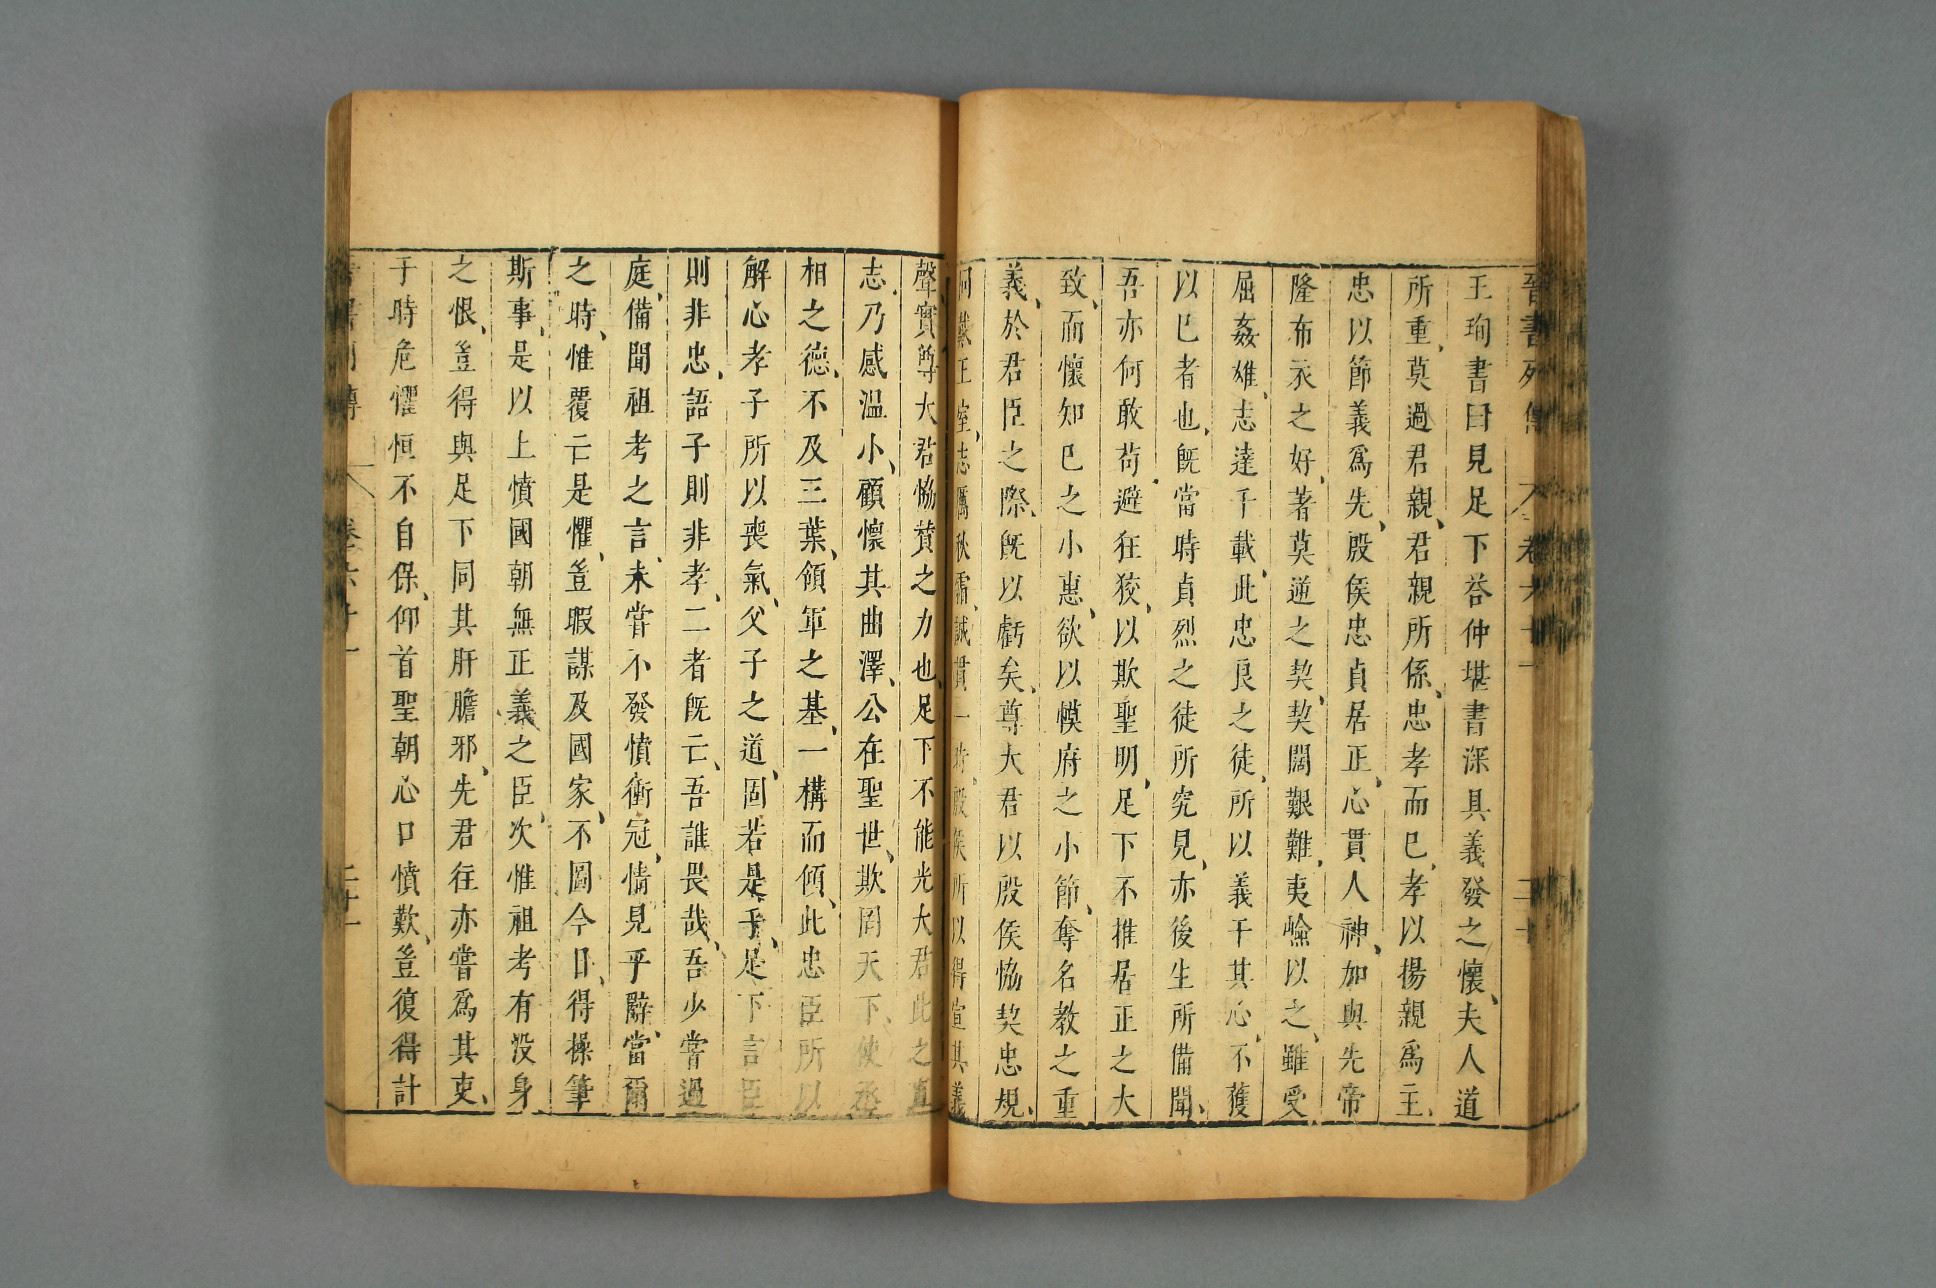 晉書列傳 卷六十一 二十
王珣書曰見足下荅仲堪書深具義發之懷夫人道
所重莫過君親君親所係忠孝而已孝以揚親爲主
忠以節義爲先殷侯忠貞居正心貫人神加與先帝
隆布衣之好著莫逆之契契闊艱難夷嶮以之雖受
屈姦雄志達千載此忠良之徒所以義干其心不獲
以已者也旣當時貞烈之徒所究見亦後生所備聞
吾亦何敢苟避狂狡以欺聖明足下不推居正之大
致而懷知己之小惠欲以幙府之小節奪名教之重
義於君臣之際旣以虧矣尊大君以殷侯協契忠規
王室志厲秋霜誠貫一時殷侯所以得宣其義
聲實尊大君協贊之力也足下不能光大君此之直
志乃感溫小顧懷其曲澤公在聖世欺罔天下使丞
相之德不及三葉領軍之基一構而傾此忠臣所以
解心孝子所以喪氣父子之道固若是乎足下言臣
則非忠語子則非孝二者旣亡吾誰畏哉吾少嘗過
庭備聞祖考之言未嘗不發憤衝冠情見乎辭當爾
之時惟覆亡是懼豈暇謀及國家不圖今日得操筆
斯事是以上憤國朝無正義之臣次惟祖考有沒身
之恨豈得與足下同其肝膽邪先君往亦嘗爲其吏
于時危懼恒不自保仰首聖朝心口憤歎豈復得計
卷六十一 二十一